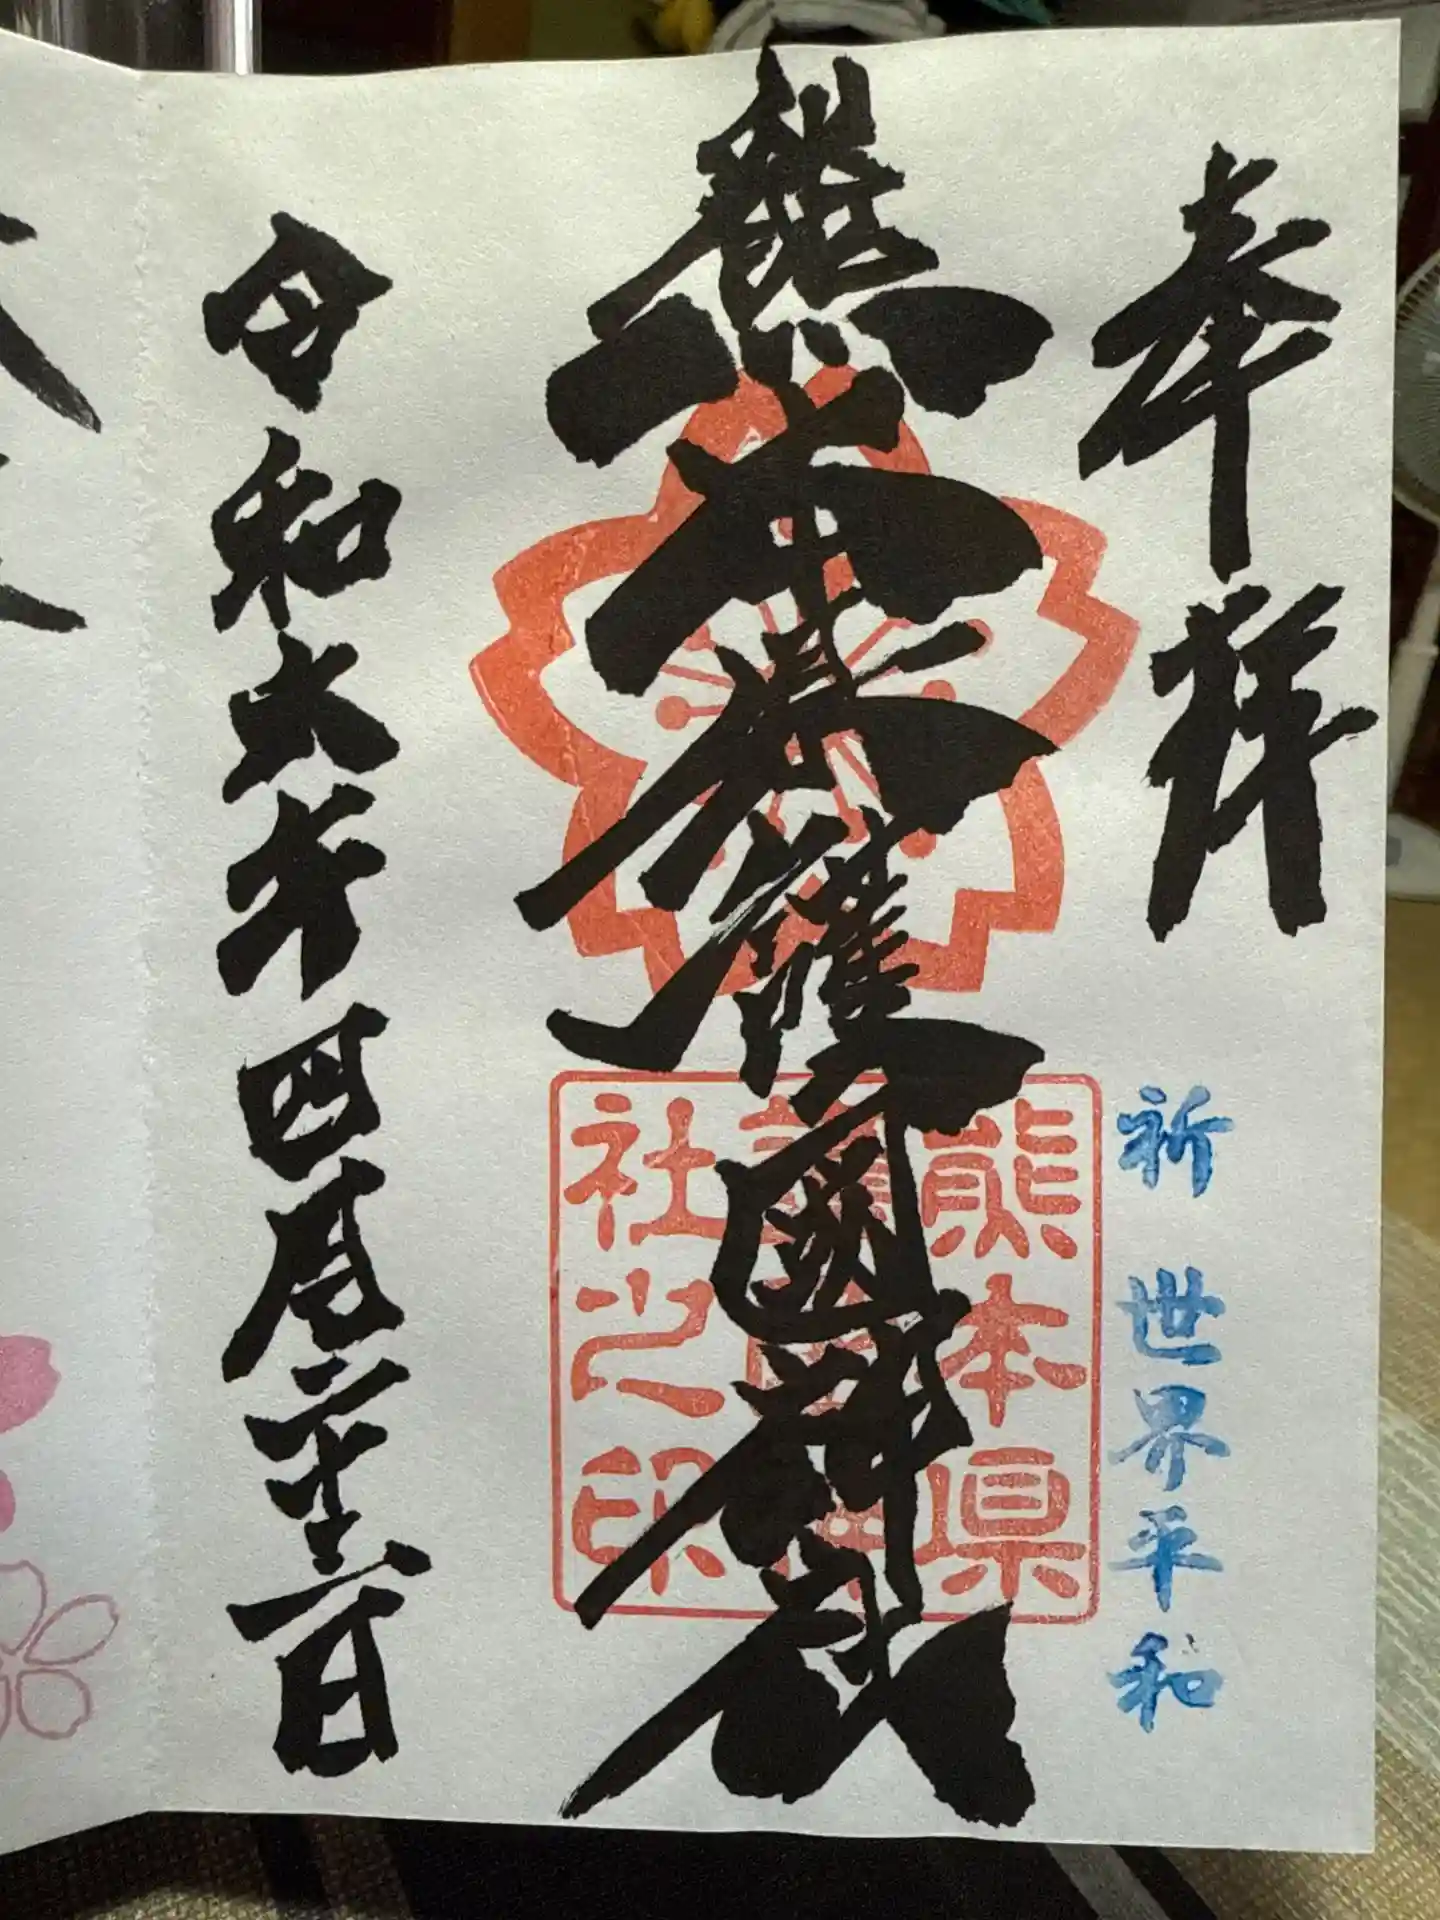 奉拝
祈 世界平和
熊本県護國神社
熊本県
護国神
社之印
令和六年四月二十二日